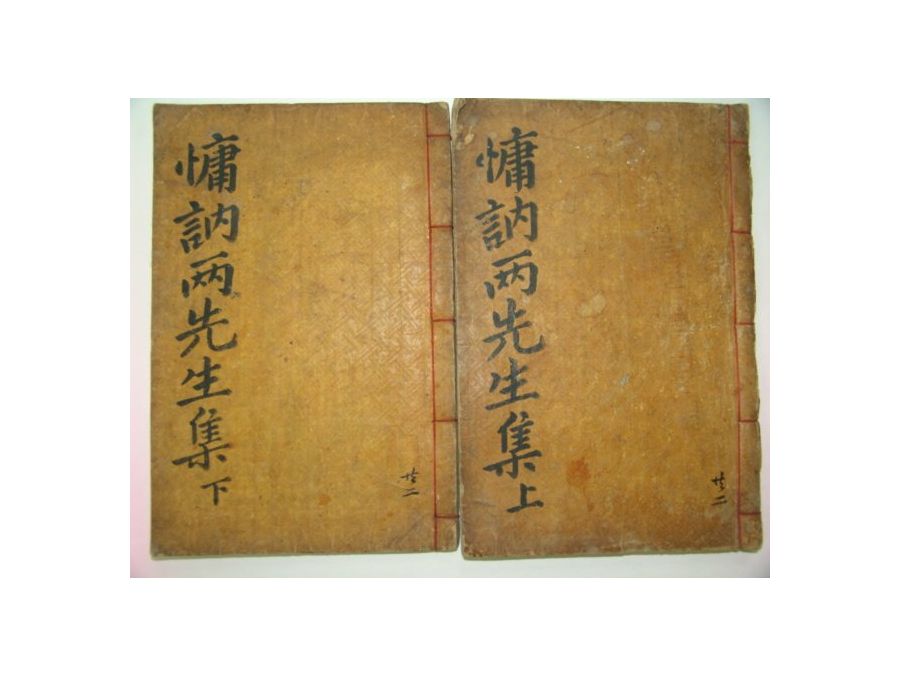 慵訥两先生集 上
共二
慵訥两先生集 下
共二